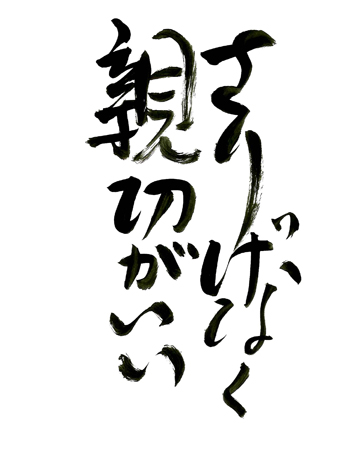 さりげなく
親切がいい